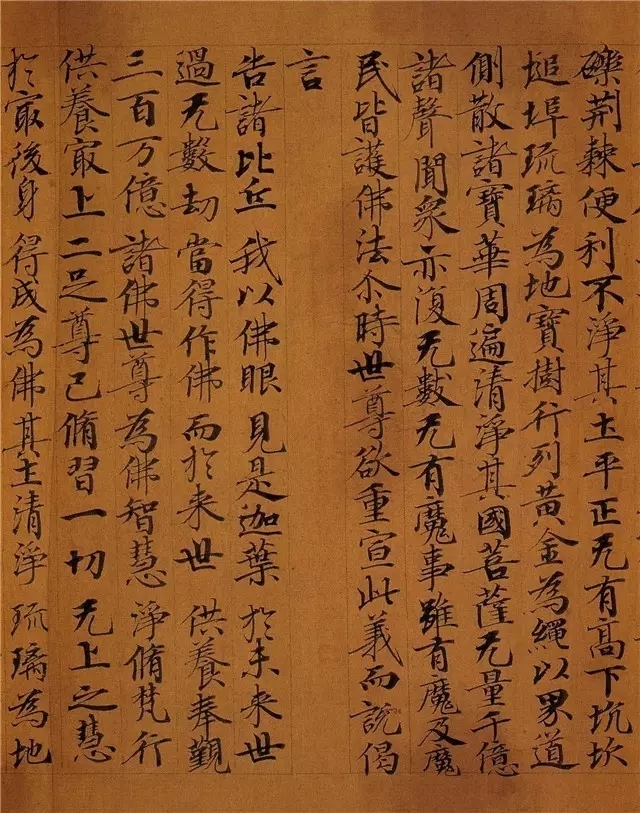 礫荆棘便利不淨其土平正无有高下坑坎
塠埠琉璃為地寶樹行列黃金為繩以界道
側散諸寶華周遍清淨其國菩薩无量千億
諸聲聞衆亦復无數无有魔事雖有魔及魔
民皆護佛法尒時世尊欲重宣此義而說偈
言
告諸比丘 我以佛眼 見是迦葉 於未来世
過无數劫 當得作佛 而於来世 供養奉覲
三百万億 諸佛世尊 為佛智慧 淨脩梵行
供養冣上 二足尊已 脩習一切 无上之慧
於冣後身 得成為佛 其土清淨 琉璃為地